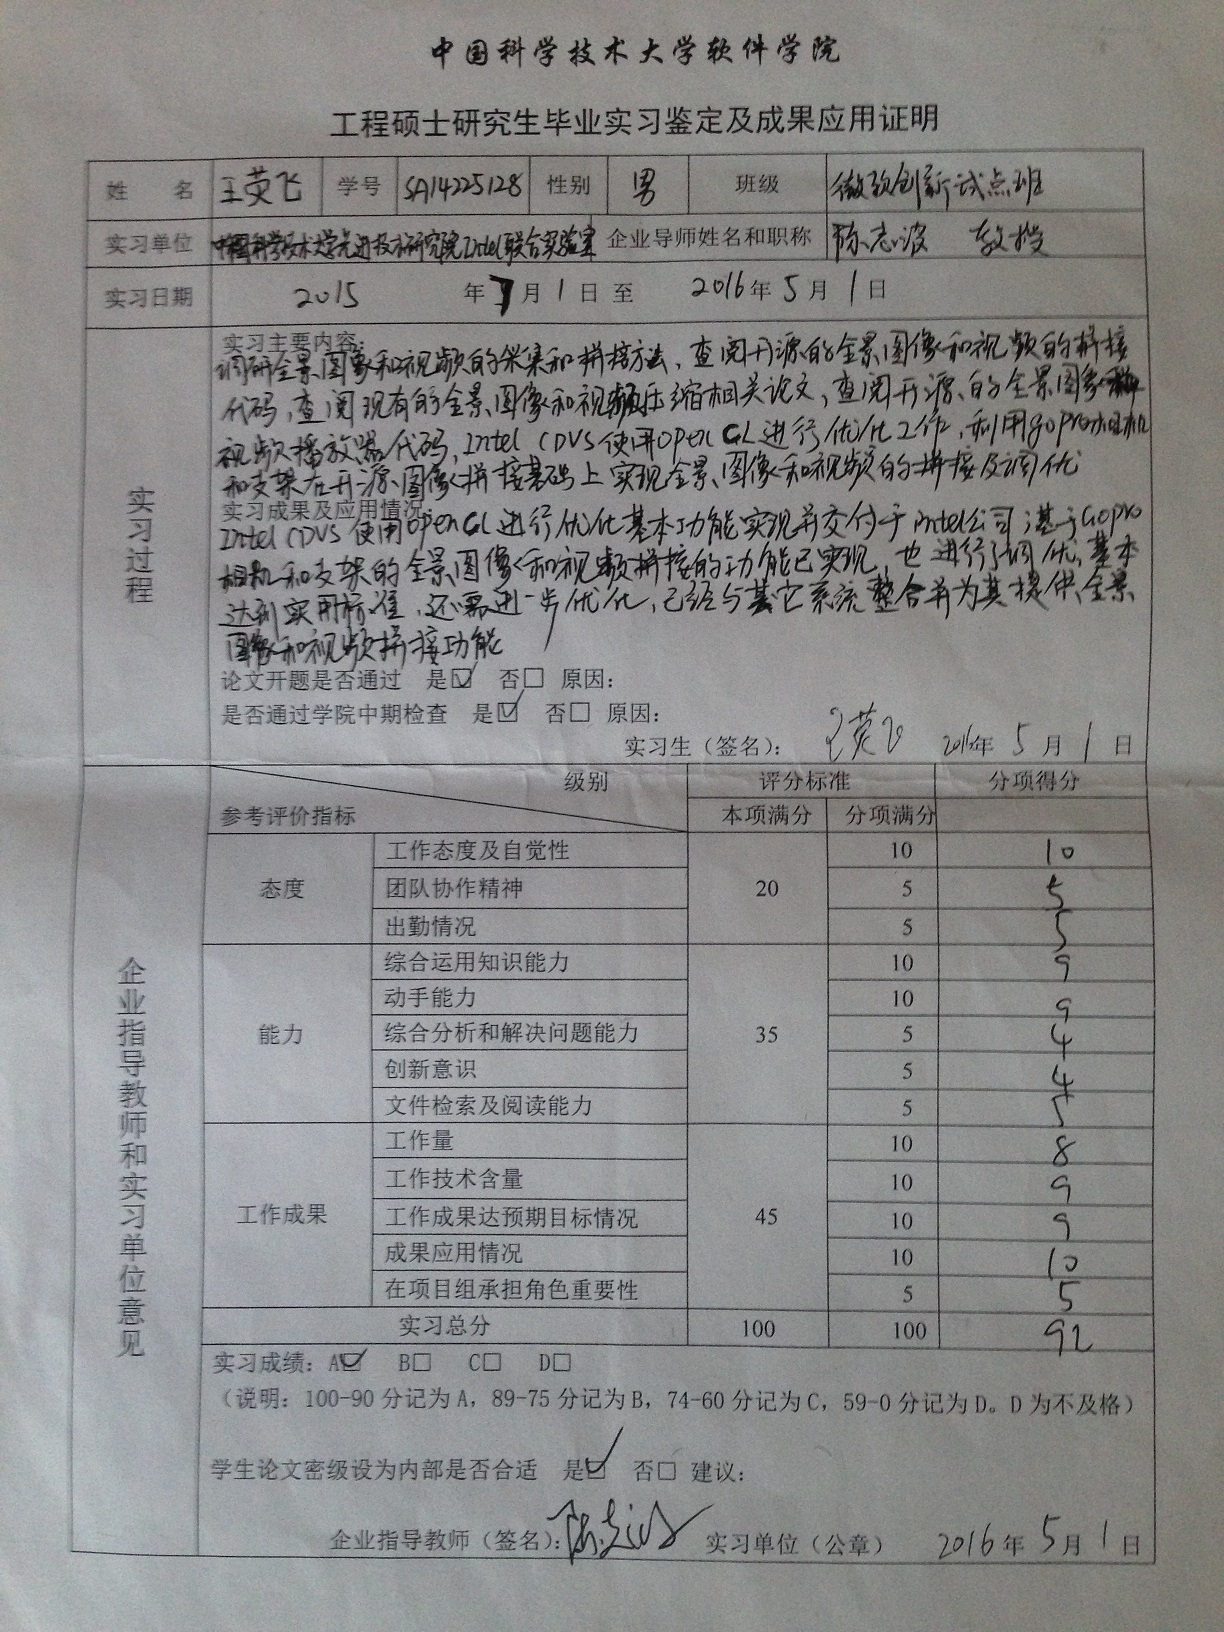 中国科学技术大学软件学院
工程硕士研究生毕业实习鉴定及成果应用证明
姓 名 王英飞 学号 SA14225128 性别 男 班级 微软创新试点班
实习单位 中国科学技术大学先进技术研究院Intel联合实验室 企业导师姓名和职称 陈志波 教授
实习日期 2015 年 7 月 1 日 至 2016 年 5 月 1 日
实习过程
实习主要内容:
调研全景图像和视频的采集和拼接方法、查阅开源的全景图像和视频的拼接
代码,查阅现有的全景图像和视频压缩相关论文,查阅开源的全景图像和
视频播放器代码,Intel CDVS使用OpenGL进行优化工作,利用gopro相机
和支架在开源图像拼接基础上实现全景图像和视频的拼接及调优
实习成果及应用情况:
Intel CDVS使用OpenGL进行优化基本功能实现并交付于Intel公司;基于Gopro
相机和支架的全景图像和视频拼接的功能已实现,也进行了调优,基本
达到实用标准,还需进一步优化,已经与其它系统整合并为其提供全景
图像和视频拼接功能
论文开题是否通过 是☑ 否□ 原因:
是否通过学院中期检查 是☑ 否□ 原因:
实习生(签名): 王英飞 2016年 5 月 1 日
企业指导教师和实习单位意见
级别 评分标准 分项得分
参考评价指标 本项满分 分项满分
态度 工作态度及自觉性 20 10 10
团队协作精神 5 5
出勤情况 5 5
能力 综合运用知识能力 35 10 9
动手能力 10 9
综合分析和解决问题能力 5 4
创新意识 5 4
文件检索及阅读能力 5 5
工作成果 工作量 45 10 8
工作技术含量 10 9
工作成果达预期目标情况 10 9
成果应用情况 10 10
在项目组承担角色重要性 5 5
实习总分 100 100 92
实习成绩: A☑ B□ C□ D□
(说明: 100-90 分记为 A, 89-75 分记为 B, 74-60 分记为 C, 59-0 分记为 D。D 为不及格)
学生论文密级设为内部是否合适 是☑ 否□ 建议:
企业指导教师(签名): 陈志波 实习单位(公章) 2016 年 5 月 1 日